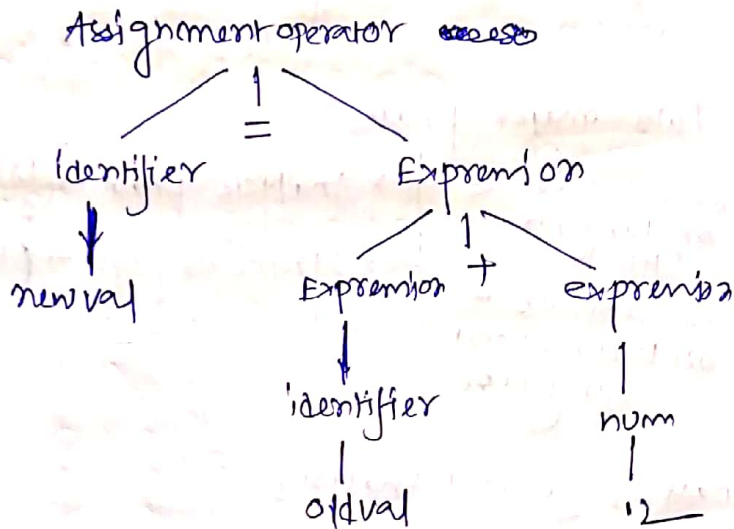 Assignment operator
=
identifier Expression
newval Expression + expression
identifier num
oldval 12